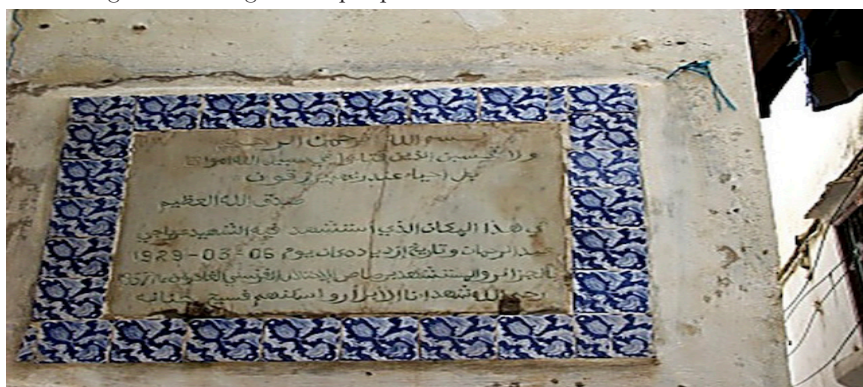 بسم الله الرحمن الرحيم
ولا تحسبن الذين قتلوا في سبيل الله امواتا
بل أحياء عند ربهم يرزقون
صدق الله العظيم
في هذا المكان الذي استشهد فيه الشهيد
عبد الرحمان وتاريخ ازدياده كان يوم 06-03-1929
بالجزائر واستشهد برصاص الإحتلال الفرنسي
رحم الله شهدانا الأبرار و اسكنهم فسيح جنانه